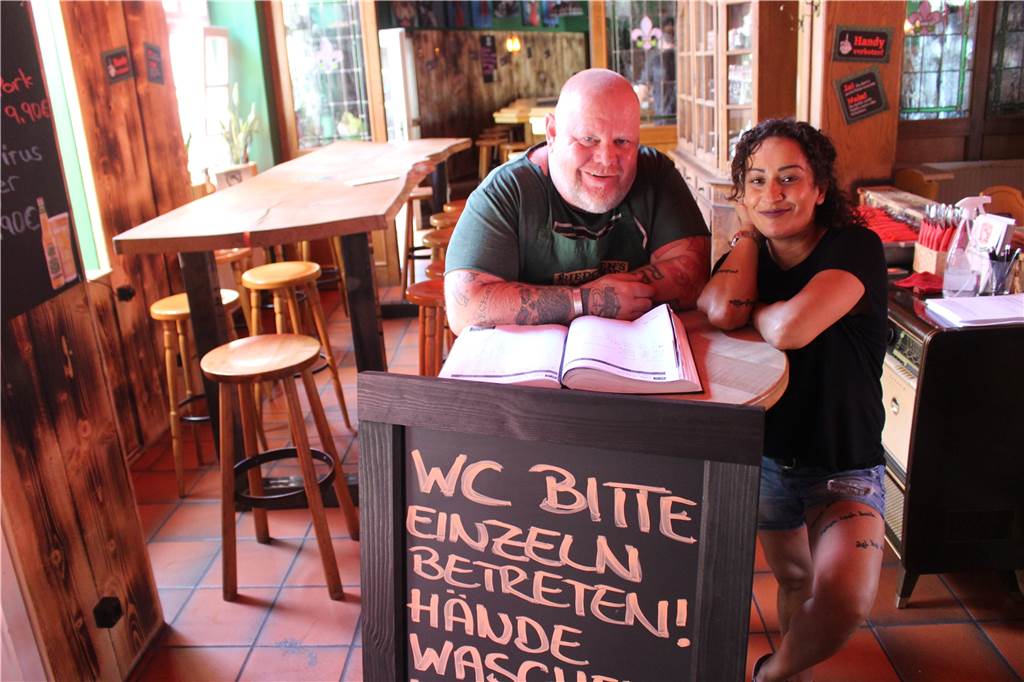 ork
9,90€
irus
er
,90€
Handy
verboten!
WC BITTE
EINZELN
BETRETEN!
HÄNDE
WASCHEN